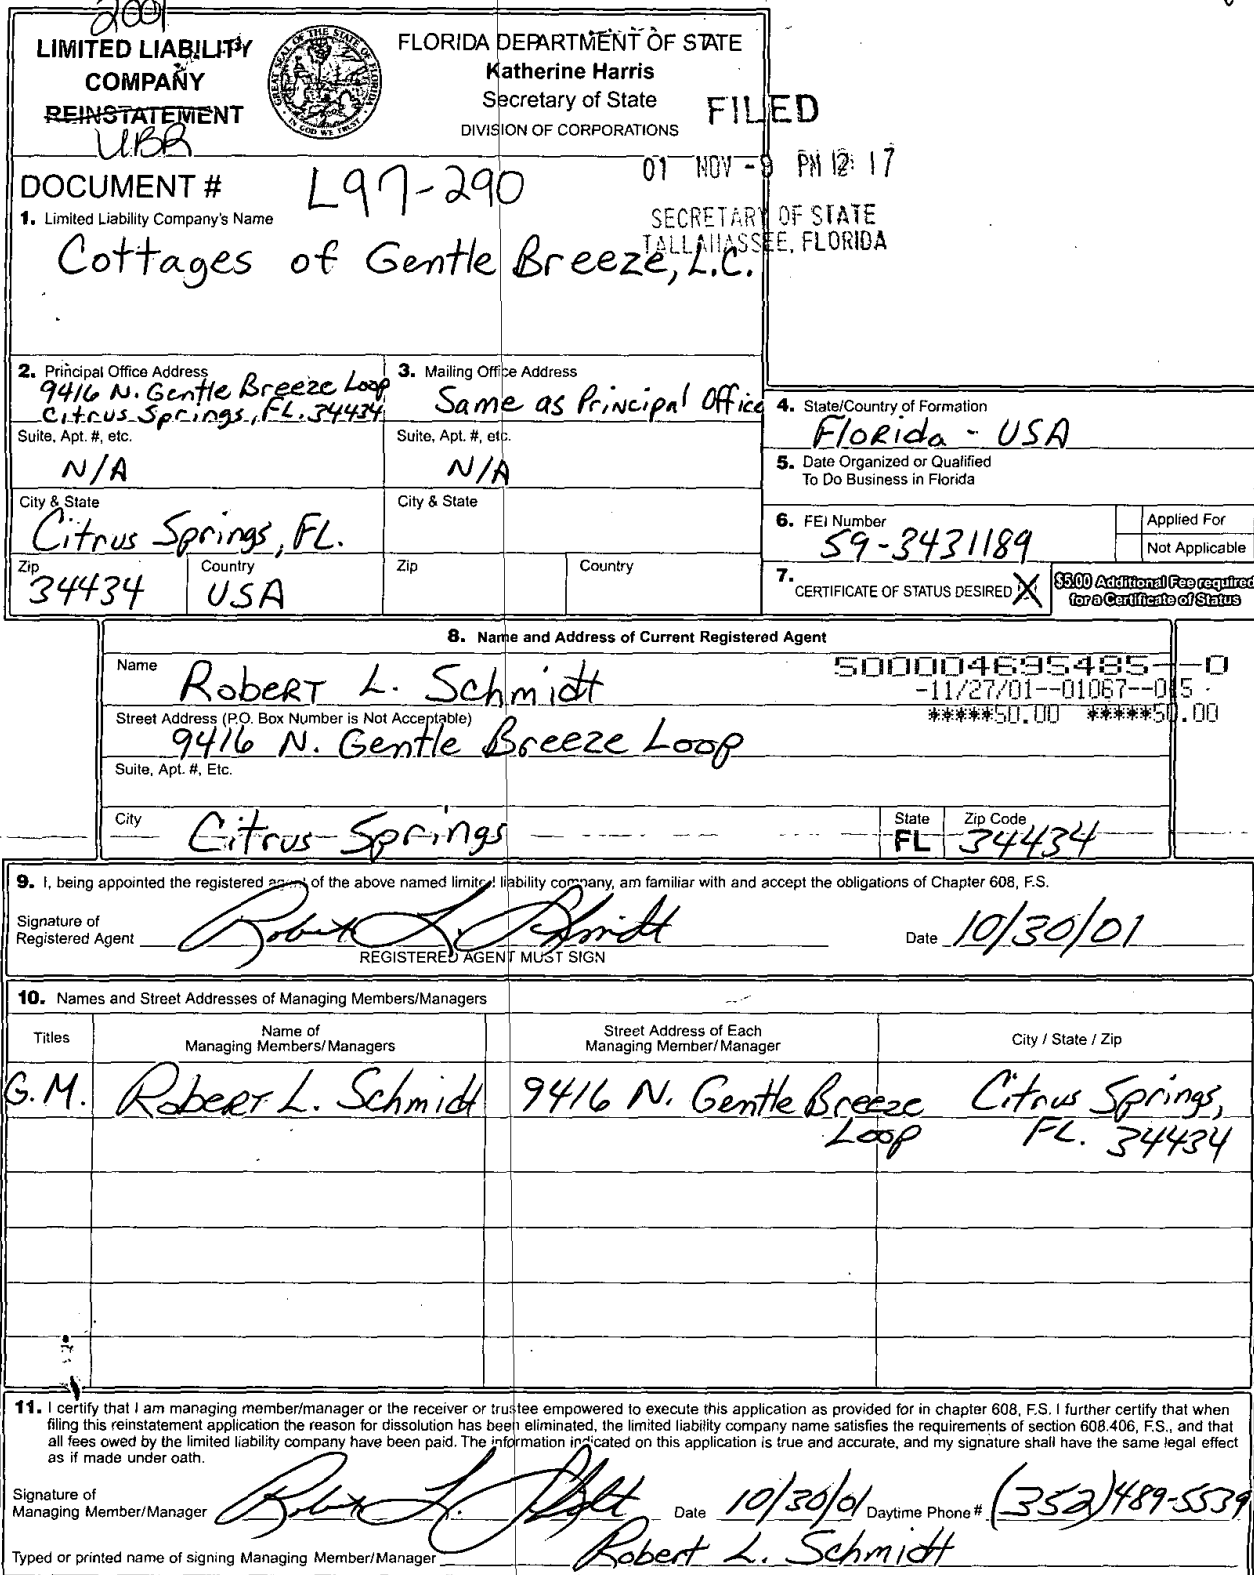 2001
LIMITED LIABILITY
COMPANY
REINSTATEMENT
UBR
GREAT SEAL OF THE STATE OF FLORIDA
IN GOD WE TRUST
FLORIDA DEPARTMENT OF STATE
Katherine Harris
Secretary of State
DIVISION OF CORPORATIONS
FILED
01 NOV -9 PM 12: 17
SECRETARY OF STATE
TALLAHASSEE, FLORIDA
DOCUMENT # L97-290
1. Limited Liability Company's Name
Cottages of Gentle Breeze, L.C.
2. Principal Office Address
9416 N. Gentle Breeze Loop
Citrus Springs, FL. 34434
3. Mailing Office Address
Same as Principal Office
Suite, Apt. #, etc.
N/A
Suite, Apt. #, etc.
N/A
City & State
Citrus Springs, FL.
City & State
Zip
34434
Country
USA
Zip
Country
4. State/Country of Formation
Florida - USA
5. Date Organized or Qualified
To Do Business in Florida
6. FEI Number
59-3431189
Applied For
Not Applicable
7. CERTIFICATE OF STATUS DESIRED X
$5.00 Additional Fee required
for a Certificate of Status
8. Name and Address of Current Registered Agent
Name
Robert L. Schmidt
500004695485--0
-11/27/01--01067--015
*****50.00 *****50.00
Street Address (P.O. Box Number is Not Acceptable)
9416 N. Gentle Breeze Loop
Suite, Apt. #, Etc.
City
Citrus Springs
State
FL
Zip Code
34434
9. I, being appointed the registered agent of the above named limited liability company, am familiar with and accept the obligations of Chapter 608, F.S.
Signature of
Registered Agent Robert L. Schmidt
Date 10/30/01
REGISTERED AGENT MUST SIGN
10. Names and Street Addresses of Managing Members/Managers
Titles
Name of
Managing Members/Managers
Street Address of Each
Managing Member/Manager
City / State / Zip
G.M. Robert L. Schmidt 9416 N. Gentle Breeze Citrus Springs,
Loop FL. 34434
11. I certify that I am managing member/manager or the receiver or trustee empowered to execute this application as provided for in chapter 608, F.S. I further certify that when
filing this reinstatement application the reason for dissolution has been eliminated, the limited liability company name satisfies the requirements of section 608.406, F.S., and that
all fees owed by the limited liability company have been paid. The information indicated on this application is true and accurate, and my signature shall have the same legal effect
as if made under oath.
Signature of
Managing Member/Manager Robert L. Schmidt Date 10/30/01 Daytime Phone # (352)489-5539
Typed or printed name of signing Managing Member/Manager Robert L. Schmidt